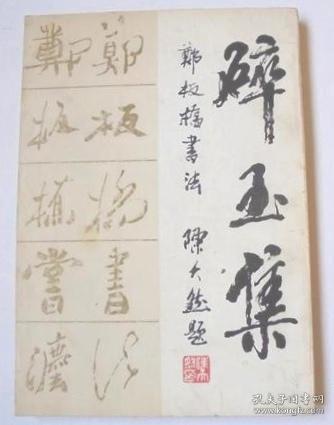 碎玉集
鄭板橋書法 陳大然题
鄭板橋書法
鄭板橋書灋
孔夫子旧书网